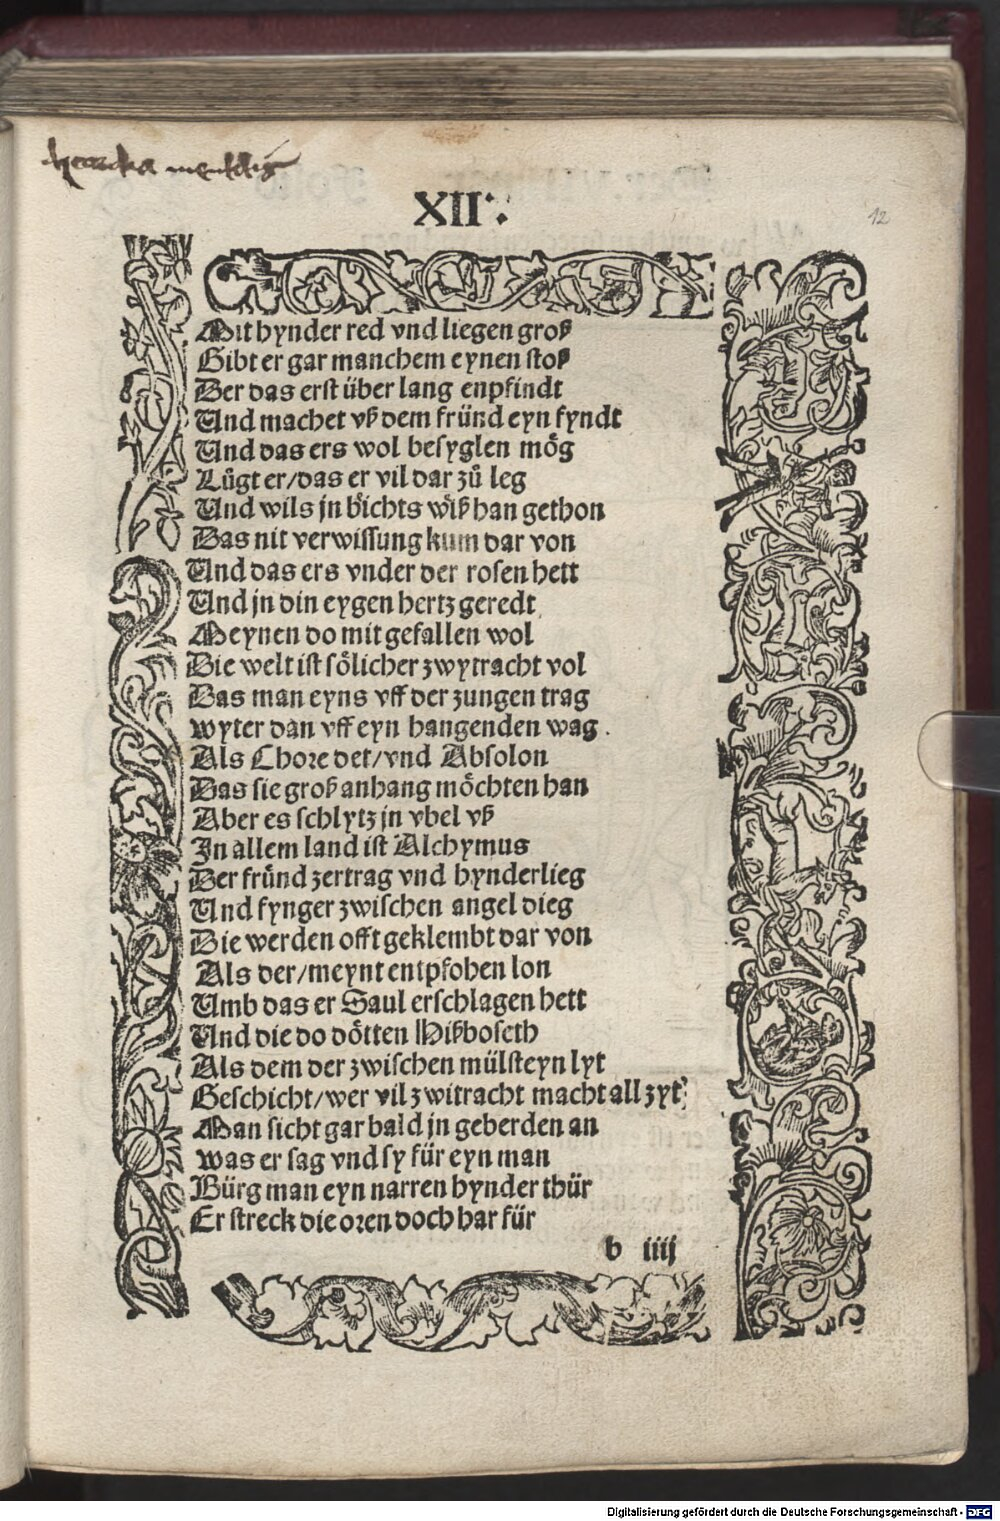 XII
12
Mit hynder red vnd liegen groß
Gibt er gar manchem eynen stoß
Der das erst über lang enpfindt
Und machet vß dem fründ eyn fyndt
Und das ers wol besyglen mög
Lůgt er/das er vil dar zů leg
Und wils jn bichts wiß han gethon
Das nit verwissung kum dar von
Und das ers vnder der rosen hett
Und jn din eygen hertz geredt
Meynen do mit gefallen wol
Die welt ist sölicher zwytracht vol
Das man eyns vff der zungen trag
wyter dan vff eyn hangenden wag.
Als Chore det/vnd Absolon
Das sie groß anhang möchten han
Aber es schlytz jn vbel vß
In allem land ist Alchymus
Der fründ zertrag vnd hynderlieg
Und fynger zwischen angel dieg
Die werden offt geklembt dar von
Als der/meynt entpfohen lon
Umb das er Saul erschlagen hett
Und die do dötten Hißboseth
Als dem der zwischen mülsteyn lyt
Geschicht/wer vil zwitracht macht all zyt
Man sicht gar bald jn geberden an
was er sag vnd sy für eyn man
Bürg man eyn narren hynder thür
Er streck die oren doch har für
b iiij
Digitalisierung gefördert durch die Deutsche Forschungsgemeinschaft - DFG